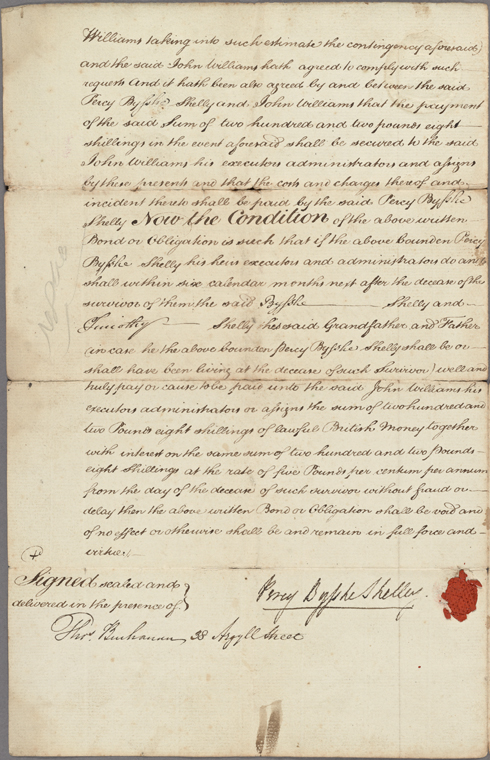 Williams taking into such estimate the contingency aforesaid)
and the said John Williams hath agreed to comply with such
request And it hath been also agreed by and between the said
Percy Bysshe Shelly and John Williams that the payment
of the said Sum of two hundred and two pounds eight
shillings in the event aforesaid shall be secured to the said
John Williams his executors administrators and assigns
by these presents and that the costs and charges thereof and
incident thereto shall be paid by the said Percy Bysshe
Shelly Now the Condition of the above written
Bond or Obligation is such that if the above bounden Percy
Bysshe Shelly his heirs executors and administrators do and
shall within six calendar months next after the decease of the
survivor of them the said Bysshe Shelly and
Timothy Shelly the said Grandfather and Father
in case he the above bounden Percy Bysshe Shelly shall be or
shall have been living at the decease of such Survivor) well and
truly pay or cause to be paid unto the said John Williams his
executors administrators or assigns the sum of two hundred and
two Pounds eight shillings of lawful British Money together
with interest on the same sum of two hundred and two pounds
eight Shillings at the rate of five Pounds per centum per annum
from the day of the decease of such survivor without fraud or
delay then the above written Bond or Obligation shall be void and
of no effect or otherwise shall be and remain in full force and
virtue
Signed sealed and
delivered in the presence of
Percy Bysshe Shelley
Thos. Buchanan 38 Argyll Street